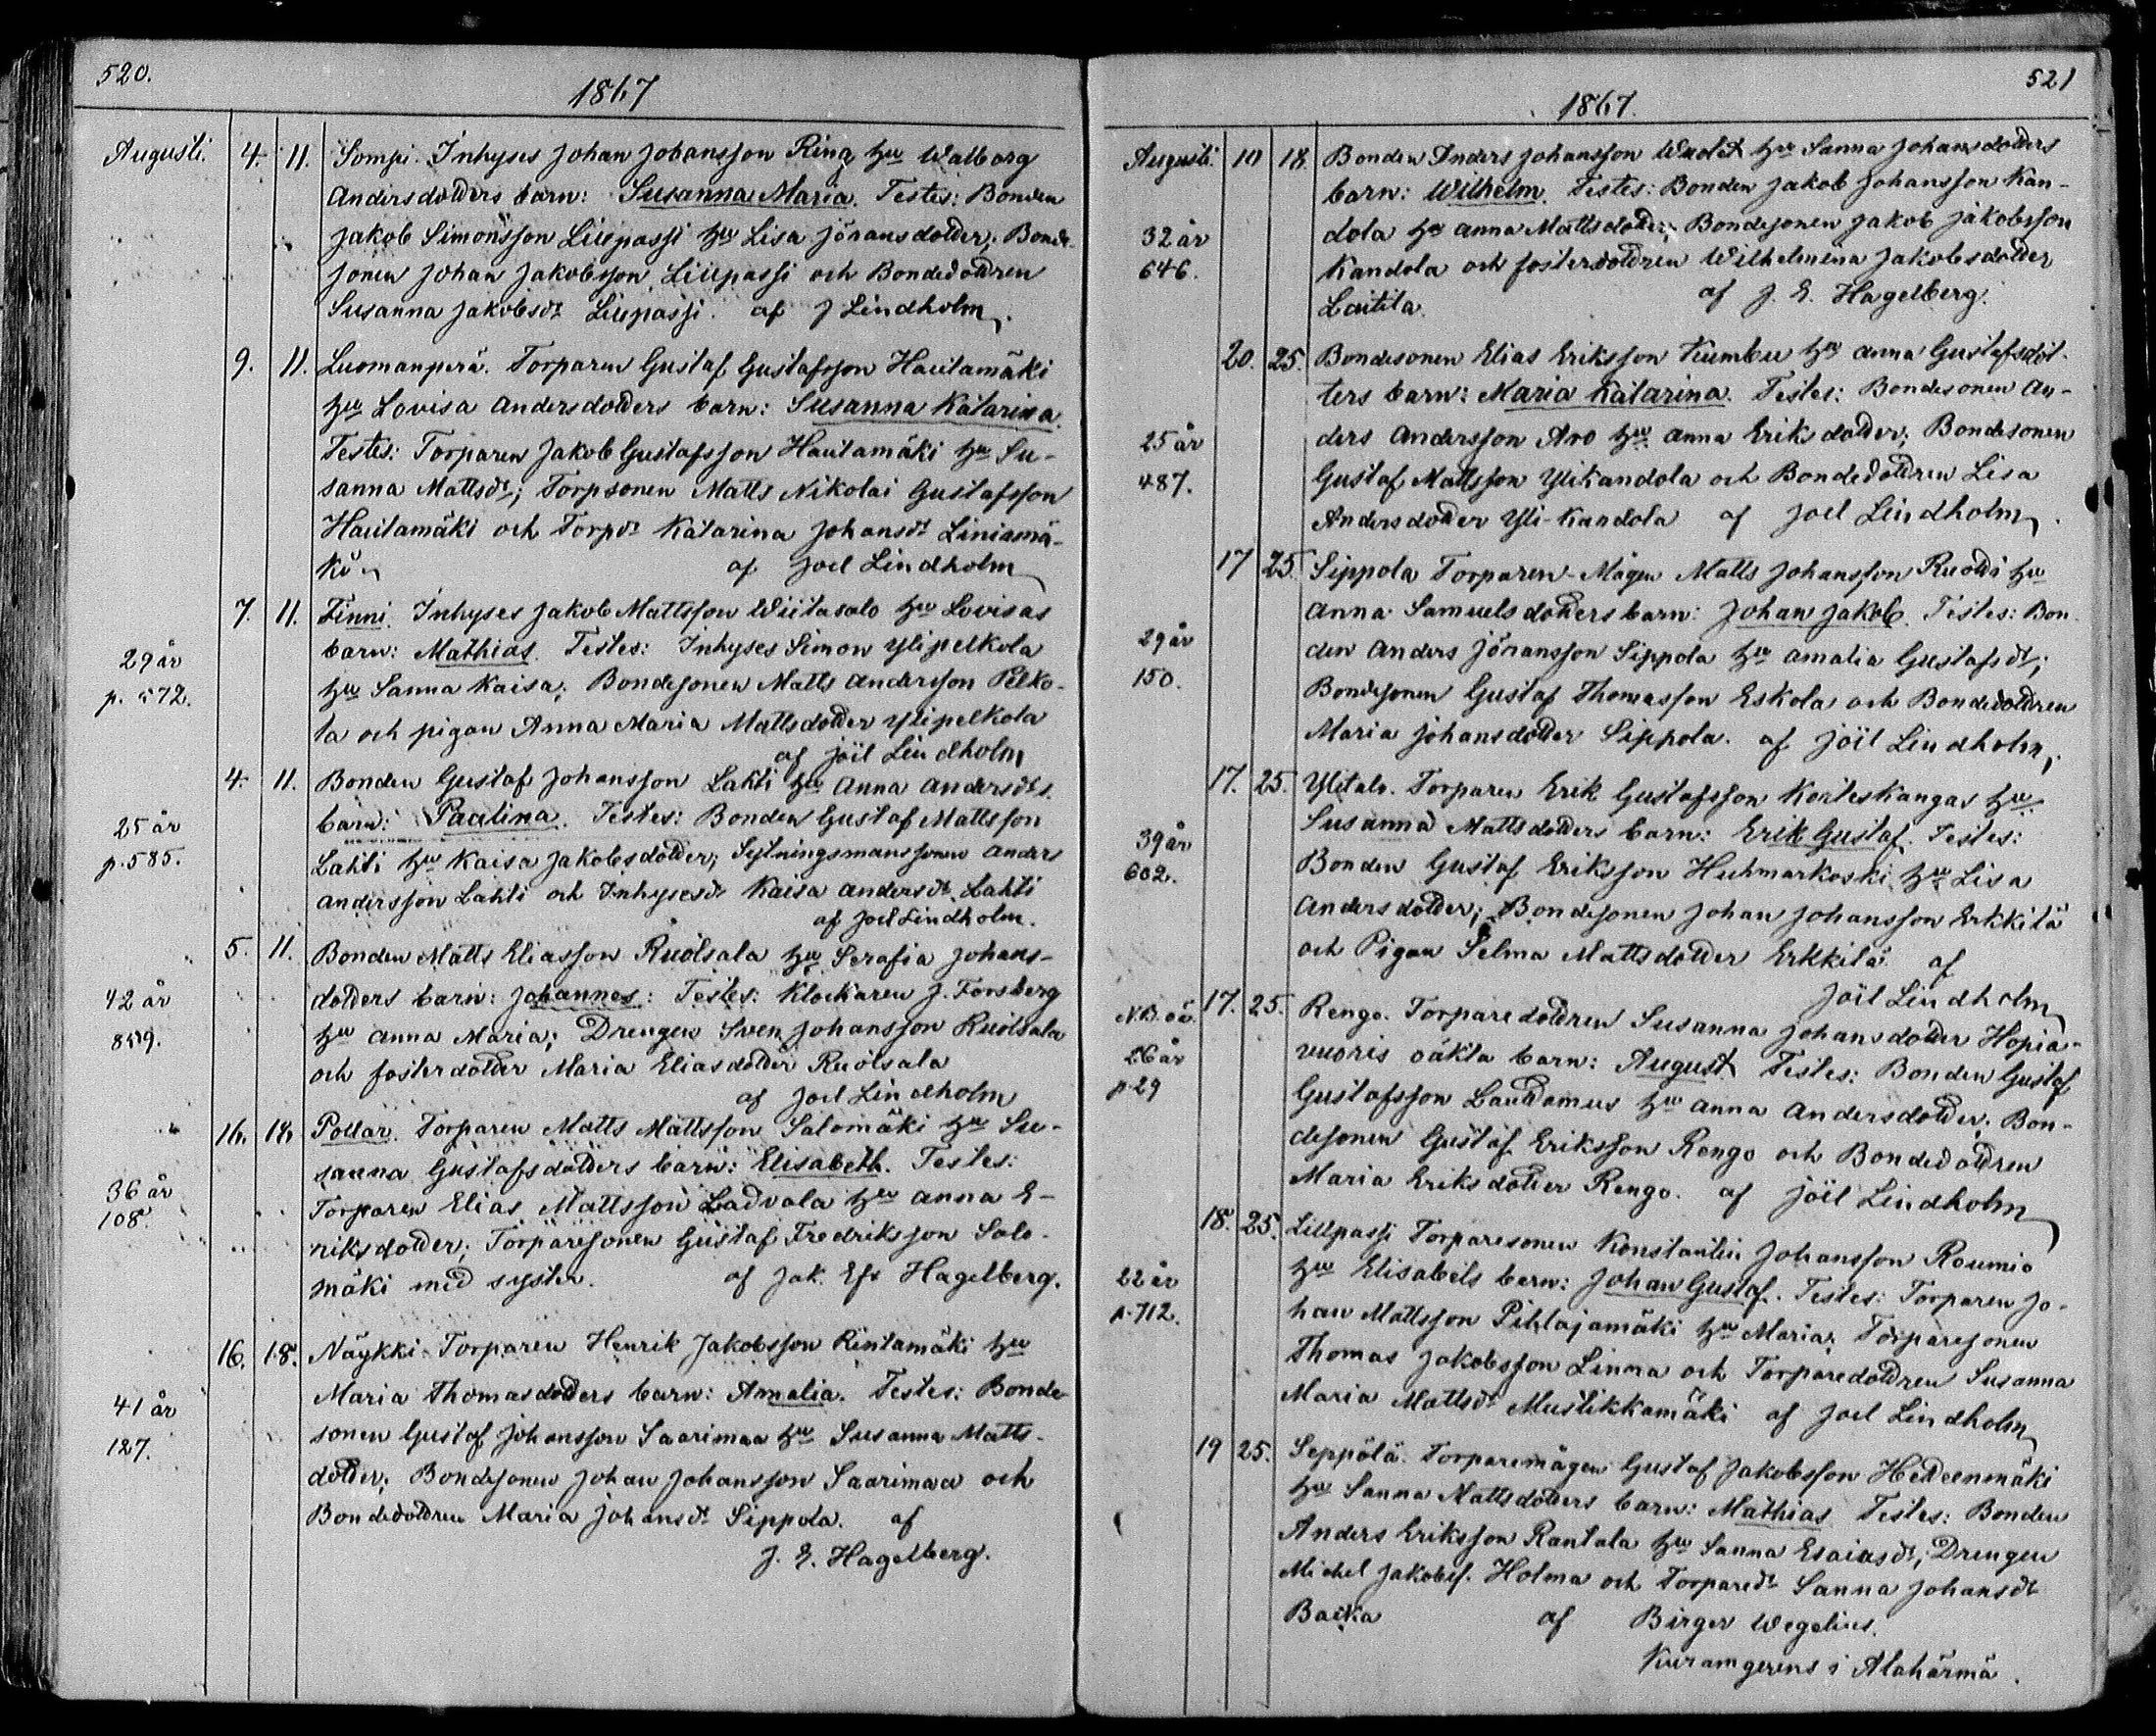 520.
1867
Augusti. 4. 11. Sompi. Inhyses Johan Johansson Ring hu Walborg
Andersdotters barn: Susanna Maria. Testes: Bonden
Jakob Simonsson Liipassi hu Lisa Jöransdotter; Bonde-
sonen Johan Jakobsson Liipassi och Bondedottren
Susanna Jakobsdr Liipassi. af J Lindholm.
9. 11. Luomanperä. Torparen Gustaf Gustafsson Hautamäki
hu Lovisa Andersdotters barn: Susanna Katarina.
Testes: Torparen Jakob Gustafsson Hautamäki hu Su-
sanna Mattsdr; Torpsonen Matts Nikolai Gustafsson
Hautamäki och Torpdr Katarina Johansdr
af Joel Lindholm
7. 11. Finni. Inhyses Jakob Mattsson Wiitasalo hu Lovisas
29 år barn: Mathias. Testes: Inhyses Simon Ylipelkola
p. 572. hu Sanna Kaisa; Bondesonen Matts Andersson Pelko-
la och pigan Anna Maria Mattsdotter Ylipelkola
af Joël Lindholm
4. 11. Bonden Gustaf Johansson Lahti hu Anna Andersdrs
25 år barn: Paulina. Testes: Bonden Gustaf Mattsson
p. 585. Lahti hu Kaisa Jakobsdotter; Sytningsmanssonen Anders
Andersson Lahti och Inhysesdr Kaisa Andersdr Lahti
af Joel Lindholm.
5. 11. Bonden Matts Eliasson Ruotsala hu Serafia Johans-
42 år dotters barn: Johannes: Testes: Klockaren J. Forsberg
hu Anna Maria; Drengen Sven Johansson Ruotsala
och fosterdotter Maria Eliasdotter Ruotsala
af Joel Lindholm
16. 18. Pollar. Torparen Matts Mattsson Salomäki hu Su-
sanna Gustafsdotters barn: Elisabeth. Testes:
36 år Torparen Elias Mattsson Ladvala hu Anna E-
108. riksdotter; Torparesonen Gustaf Fredriksson Salo-
mäki med syster. af Jak. Efr Hagelberg.
16. 18. Näykki Torparen Henrik Jakobsson Rintamäki hu
41 år Maria Thomasdotters barn: Amalia. Testes: Bonde-
127. sonen Gustaf Johansson Saarimaa hu Susanna Matts-
dotter; Bondesonen Johan Johansson Saarimaa och
Bondedottren Maria Johansdr Sippola. af
J. E. Hagelberg.
521
1867.
Augusti. 10 18. Bonden Anders Johansson hu Sanna Johansdotters
barn: Wilhelm. Testes: Bonden Jakob Johansson Kan-
32 år dola hu Anna Mattsdotter; Bondesonen Jakob Jakobsson
646. Kandola och fosterdottren Wilhelmina Jakobsdotter
Laitila. af J. E. Hagelberg.
20. 25. Bondesonen Elias Eriksson Kumbu hu Anna Gustafsdot-
ters barn: Maria Katarina. Testes: Bondesonen An-
25 år ders Andersson Aro hu Anna Eriksdotter; Bondesonen
487. Gustaf Mattsson Ylikandola och Bondedottren Lisa
Andersdotter Yli-Kandola af Joel Lindholm.
17 25. Sippola Torparen-Mågen Matts Johansson hu
29 år Anna Samuelsdotters barn: Johan Jakob. Testes: Bon-
den Anders Jöransson Sippola hu Amalia Gustafsdr;
150. Bondesonen Gustaf Thomasson Eskola och Bondedottren
Maria Johansdotter Sippola. af Joël Lindholm,
17. 25. Ylitalo. Torparen Erik Gustafsson Korteskangas hu
39 år Susanna Mattsdotters barn: Erik Gustaf. Testes:
602. Bonden Gustaf Eriksson Huhmarkoski hu Lisa
Andersdotter; Bondesonen Johan Johansson Erkkilä
och Pigan Selma Mattsdotter Erkkilä. af
Joël Lindholm
N.B. oä. 17. 25. Rengo. Torparedottren Susanna Johansdotter Hopia-
26 år vuoris oäkta barn: August. Testes: Bonden Gustaf
p. 29 Gustafsson Lauttamus hu Anna Andersdotter; Bon-
desonen Gustaf Eriksson Rengo och Bondedottren
Maria Eriksdotter Rengo. af Joël Lindholm
18. 25. Torparesonen Konstantin Johansson Roumio
22 år hu Elisabets barn: Johan Gustaf. Testes: Torparen Jo-
p. 712. han Mattsson Pihlajamäki hu Maria; Torparesonen
Thomas Jakobsson Linna och Torparedottren Susanna
Maria Mattsdr Mustikkamäki af Joel Lindholm
19 25. Seppälä. Torparemågen Gustaf Jakobsson
hu Sanna Mattsdotters barn: Mathias Testes: Bonden
Anders Eriksson Rantala hu Sanna Esaiasdr; Drengen
Michel Jakobss. Holma och Torparedr Sanna Johansdr
af Birger Wegelius.
i Alahärmä.